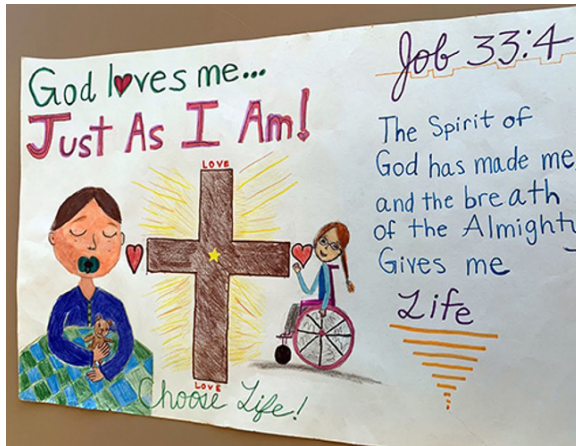 God loves me...
Just As I Am!
LOVE
LOVE
Choose Life!
Job 33:4
The Spirit of
God has made me
and the breath
of the Almighty
Gives me
Life